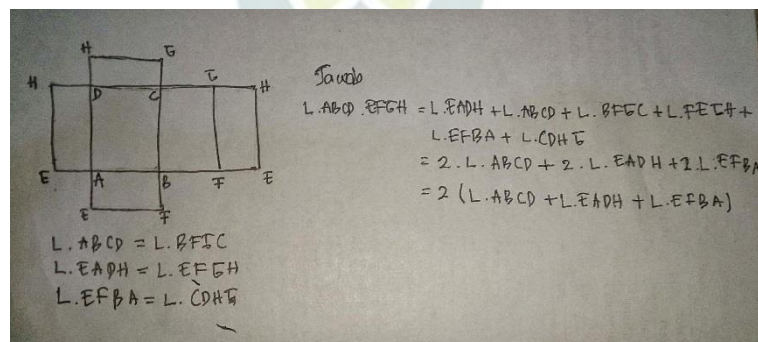 H G
H G H
D C
E A B F E
E F
L. ABCD = L. BFGC
L. EADH = L. EFGH
L. EFBA = L. CDHG
Jawab
L. ABCD.EFGH = L. EADH + L. ABCD + L. BFGC + L. FEGH +
L. EFBA + L. CDHG
= 2. L. ABCD + 2. L. EADH + 2. L. EFBA
= 2 (L. ABCD + L. EADH + L. EFBA)